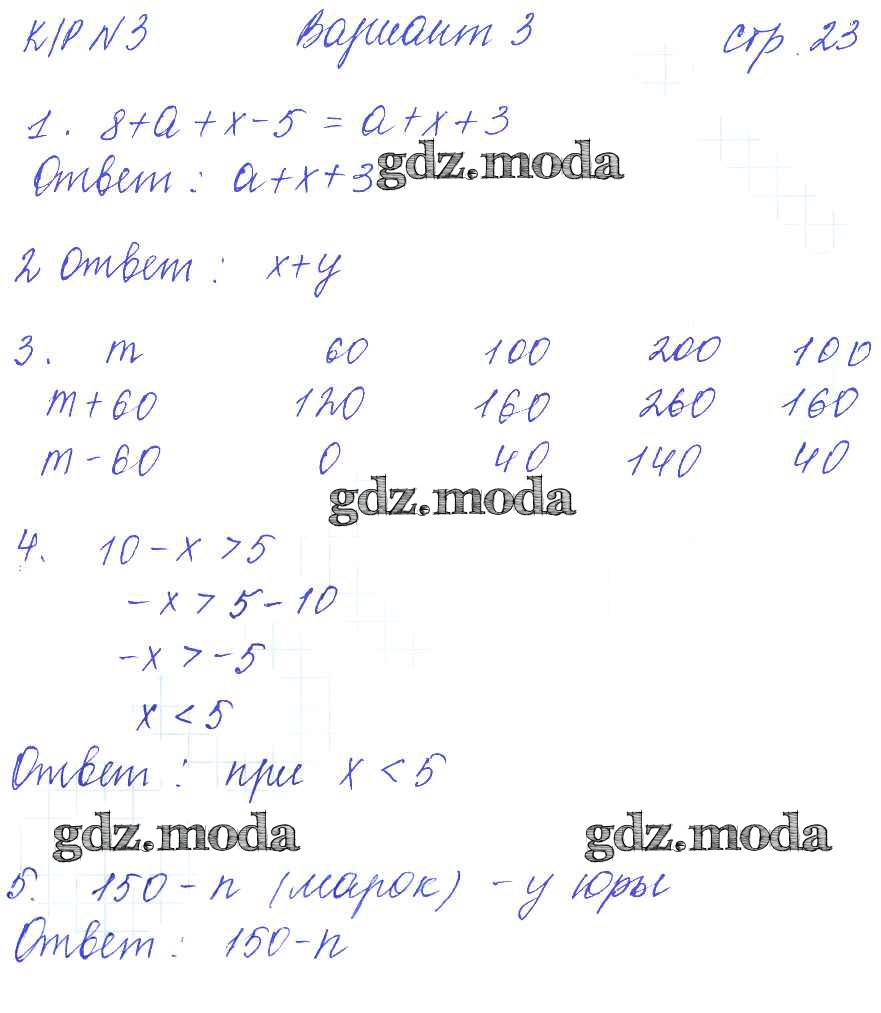 К/Р N3 Вариант 3 стр. 23
1. 8+a+x-5 = a+x+3
Ответ: a+x+3
gdz.moda
2 Ответ: x+y
3. m 60 100 200 100
m+60 120 160 260 160
m-60 0 40 140 40
gdz.moda
4. 10-x > 5
-x > 5-10
-x > -5
x < 5
Ответ: при x < 5
gdz.moda gdz.moda
5. 150-n (марок) - у Юры
Ответ: 150-n